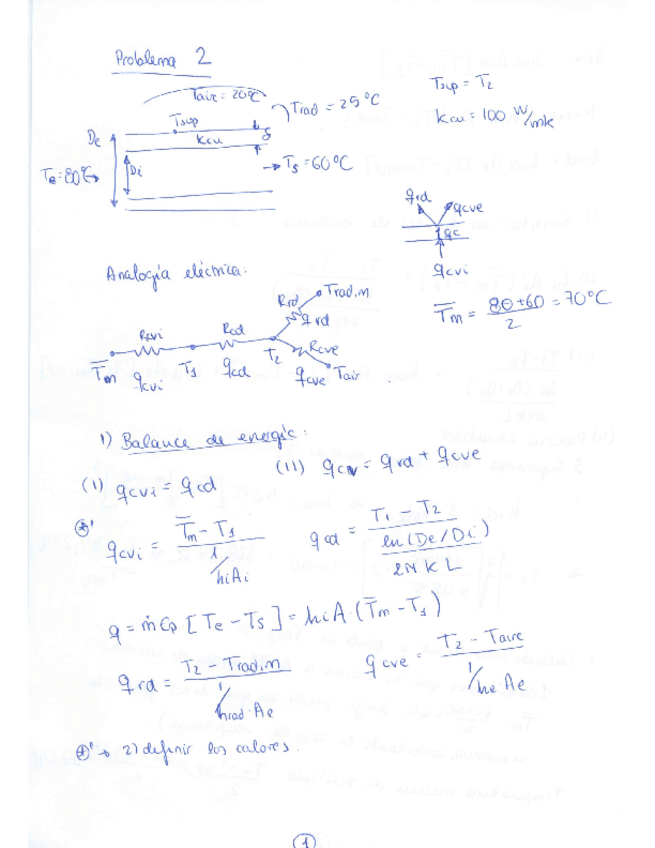 Problema 2
Taire = 20°C
Trad = 25°C
Tsup = T2
Kcu = 100 W/mk
Tsup
Kcu
De
δ
Te = 80°C
Di
Ts = 60°C
qrd
qcve
qc
qcvi
Analogía eléctrica:
T̅m = 80+60/2 = 70°C
Rrd
Trad,m
qrd
Rcvi
Rcd
Rcve
T̅m
qcvi
T1
qcd
T2
qcve
Tair
1) Balance de energía:
(I) qcvi = qcd
(II) qcv = qrd + qcve
*' qcvi = T̅m - T1 / 1/hiAi
qcd = T1 - T2 / ln(De/Di) / 2πKL
q = ṁCp [Te - Ts] = hiA·(T̅m - T1)
qrd = T2 - Trad,m / 1/hrad·Ae
qcve = T2 - Taire / 1/he Ae
*' → 2) definir los calores.
1